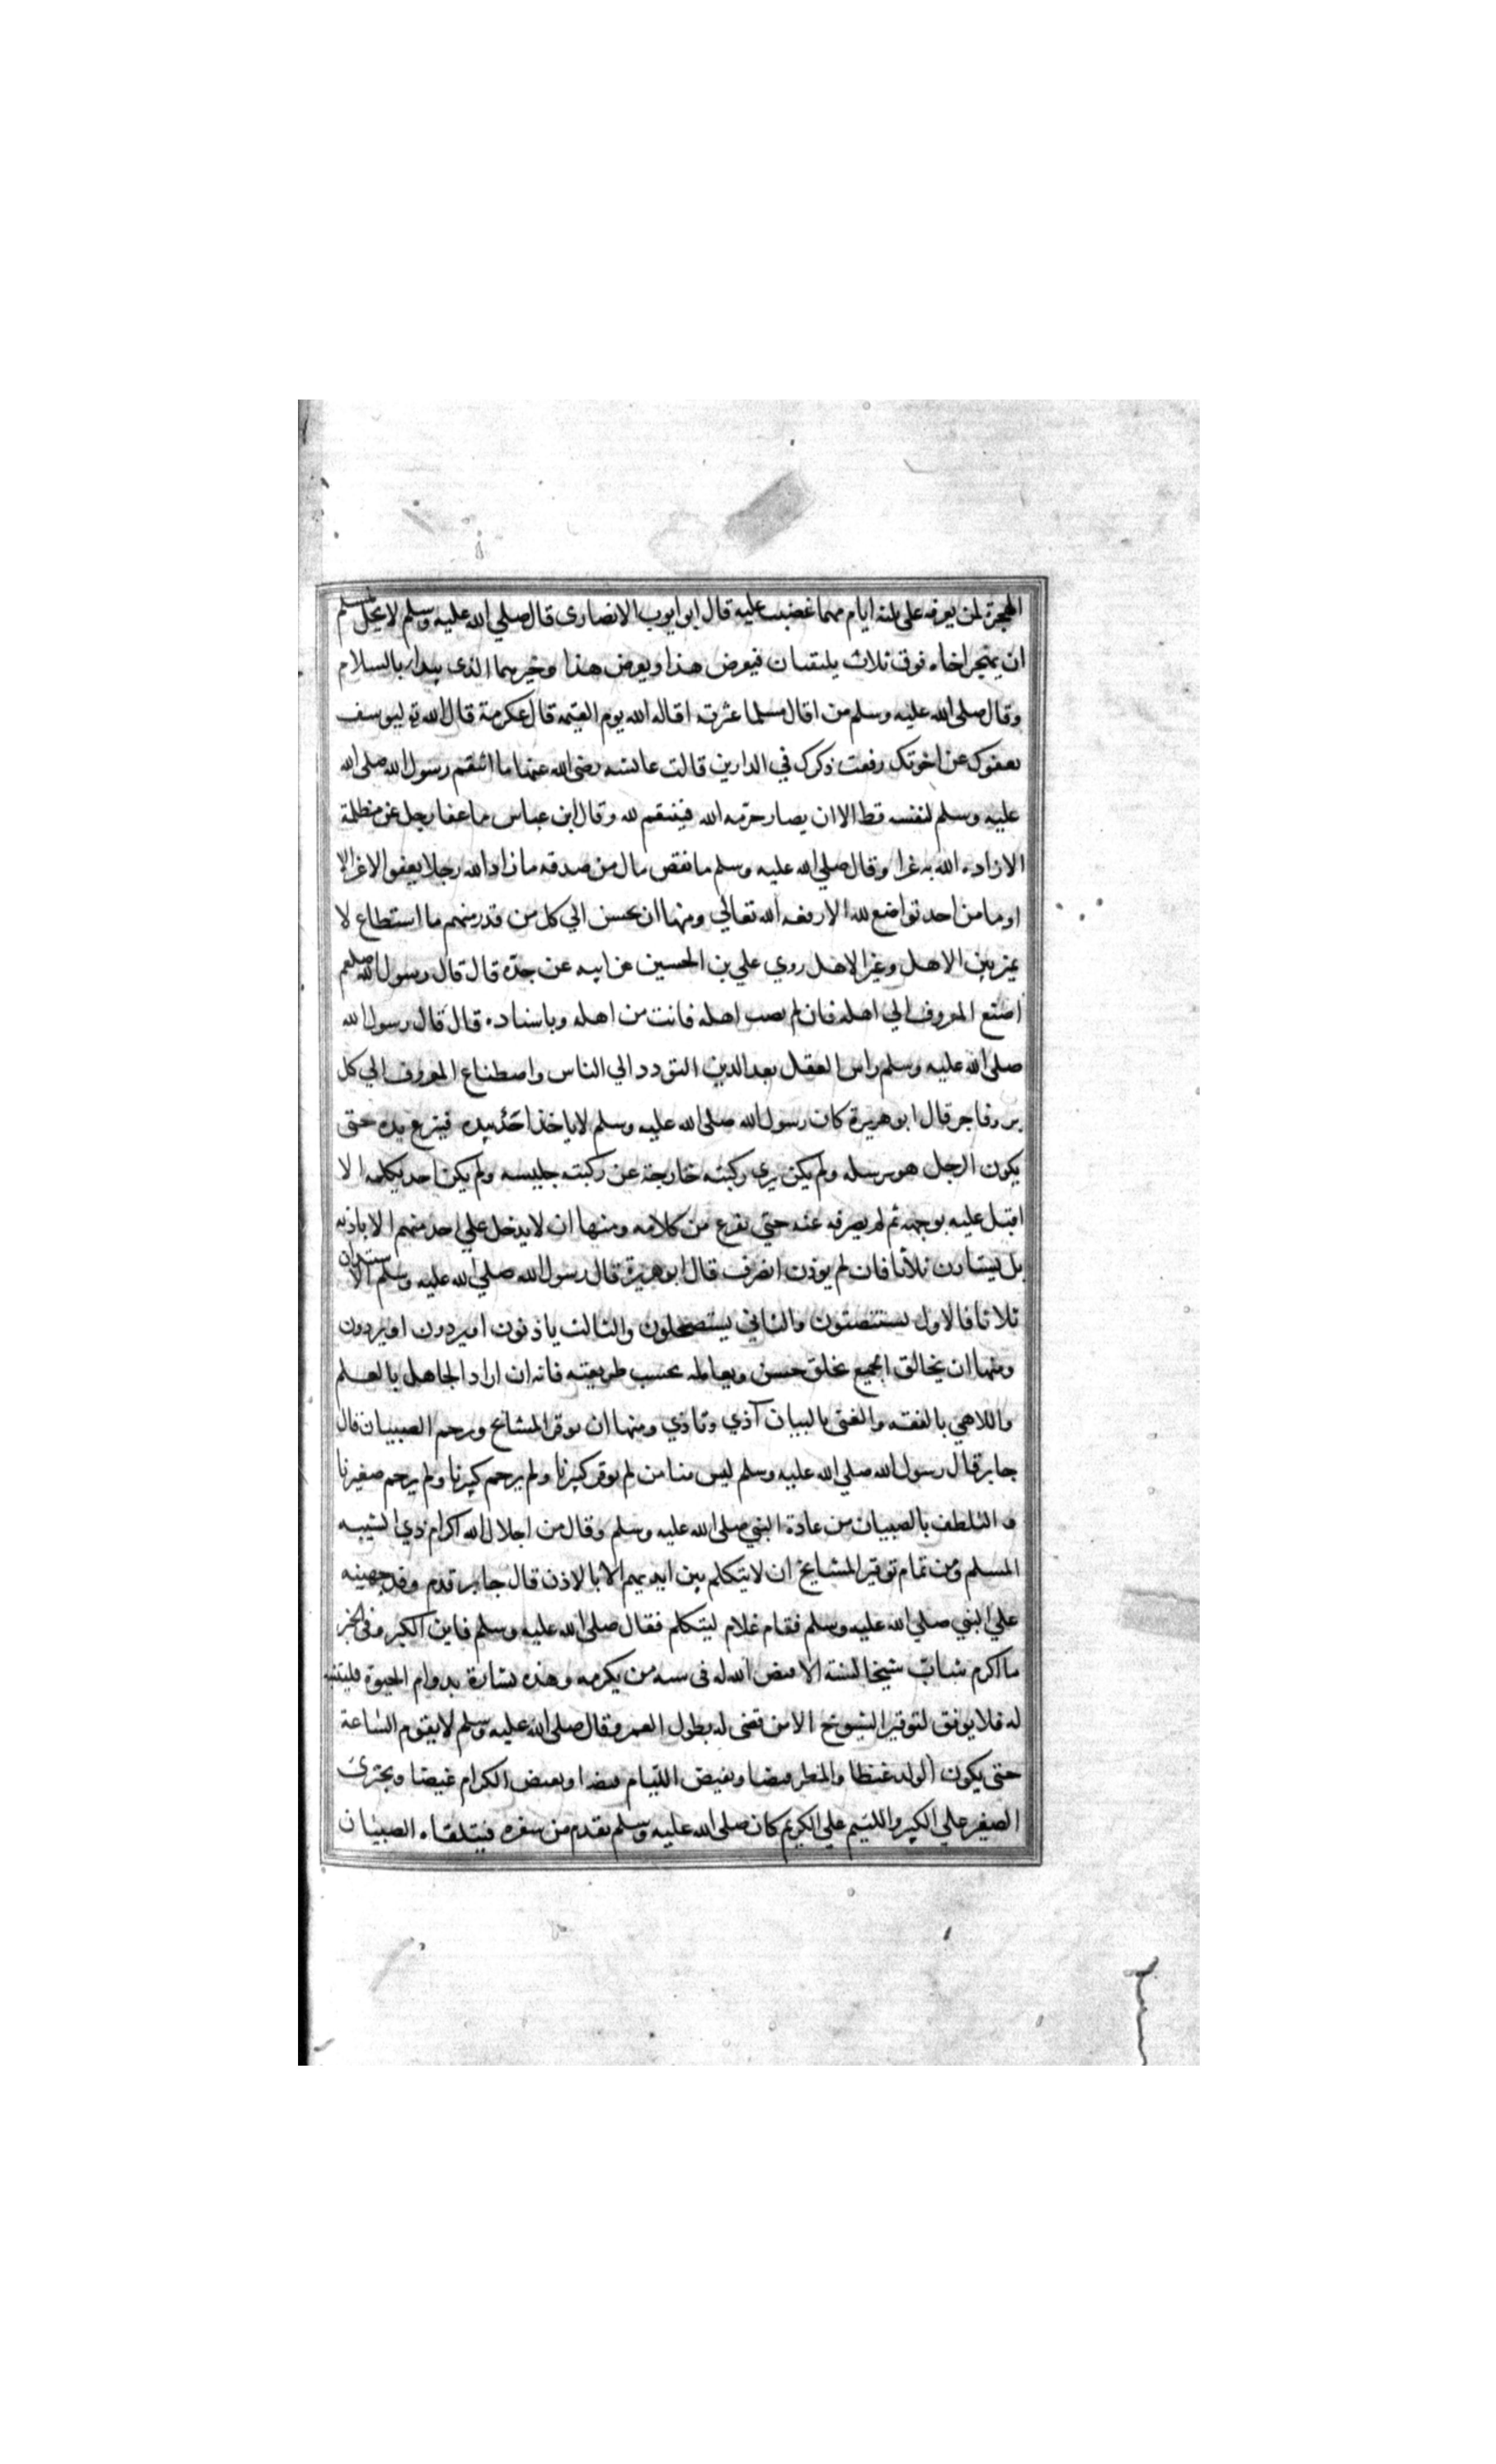 الهجرة لمن يعرفه على ثلثه ايام مهما غضب عليه قال ابو ايوب الانصارى قال صلي الله عليه وسلم لا يحل لمسلم
ان يهجر اخاه فوق ثلاث يلتقيان فيعرض هذا ويعرض هذا وخيرهما الذى يبدا بالسلام
وقال صلى الله عليه وسلم من اقال مسلما عثرته اقاله الله يوم القيمه قال عكرمة قال الله تع ليوسف
بعفوك عن اخوتك رفعت ذكرك في الدارين قالت عائشه رضى الله عنها ما انتقم رسول الله صلى الله
عليه وسلم لنفسه قط الا ان يصاب حرمه الله فينتقم لله وقال ابن عباس ما عفا رجل عن مظلمة
الا زاده الله به عزا وقال صلي الله عليه وسلم ما نقص مال من صدقه ما زاد الله رجلا بعفو الا عزا الا
او ما من احد تواضع لله الا رفعه الله تعالي ومنها ان يحسن الي كل من قدر منهم ما استطاع لا
يميز بين الاهل وغير الاهل روي علي بن الحسين عن ابيه عن جده قال قال رسول الله صلعم
اصنع المعروف الي اهله فان لم يصب اهله فانت من اهله وباسناده قال قال رسول الله
صلى الله عليه وسلم راس العقل بعد الدين التودد الي الناس واصطناع المعروف الي كل
بر وفاجر قال ابو هريرة كان رسول الله صلى الله عليه وسلم لا ياخذ احد بيده فينزع يده حتى
يكون الرجل هو يرسله ولم يكن يرى ركبته خارجة عن ركبته جليسه ولم يكن احد يكلمه الا
اقبل عليه بوجهه ثم لم يصرفه عنه حتي يفرغ من كلامه ومنها ان لا يدخل علي احد منهم الا باذنه
بل يستاذن ثلاثا فان لم يوذن انصرف قال ابو هريرة قال رسول الله صلي الله عليه وسلم الاستيذان
ثلاثا فالاول يستنصتون والثاني يستصلحون والثالث ياذنون او يردون او يردون
ومنها ان يخالق الجميع بخلق حسن ويعامله بحسب طريقته فانه ان اراد الجاهل بالعلم
واللاهي بالفقه والغني بالبيان آذي وتاذي ومنها ان يوقر المشايخ ويرحم الصبيان قال
جابر قال رسول الله صلى الله عليه وسلم ليس منا من لم يوقر كبيرنا ولم يرحم كبيرنا ولم يرحم صغيرنا
و التلطف بالصبيان من عادة النبي صلى الله عليه وسلم وقال من اجلال الله اكرام ذي الشيبه
المسلم ومن تمام توقير المشايخ ان لا يتكلم بين ايديهم الا بالاذن قال جابر قدم وفد جهينه
علي النبي صلي الله عليه وسلم فقام غلام ليتكلم فقال صلى الله عليه وسلم فاين الكبر وفى الخبر
ما اكرم شباب شيخا لسنه الا قيض الله له فى سنه من يكرمه وهذه بشارة بدوام الحيوة فليتنبه
له فلا يوفق لتوقير الشيوخ الا من قضى له بطول العمر وقال صلى الله عليه وسلم لا يقوم الساعة
حتى يكون الولد غيظا والمطر قيضا ويفيض الليام فيضا ويغيض الكرام غيضا ويجترئ
الصغير علي الكبير واللئيم علي الكريم كان صلى الله عليه وسلم يقدم من سفره فيتلقاه الصبيان